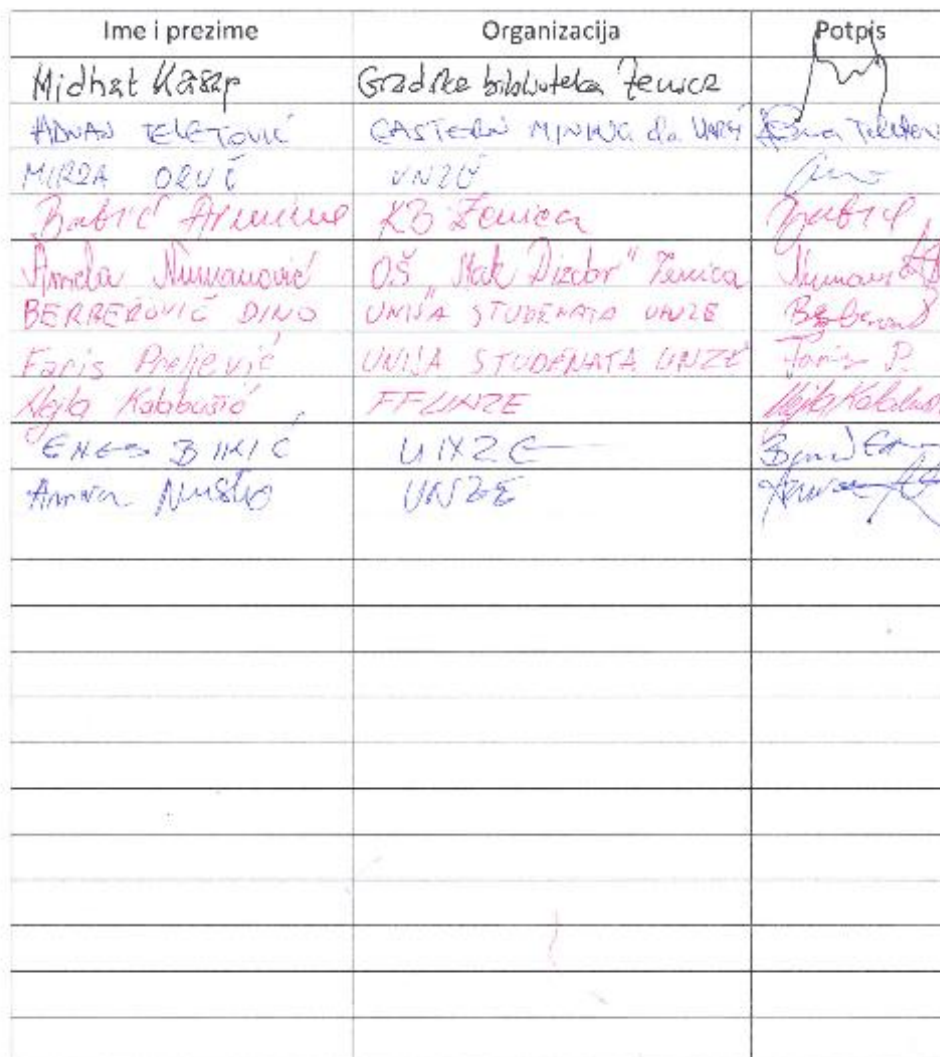 Ime i prezime Organizacija Potpis
Midhat Kasap Gradska biblioteka Zenica
ADNAN TELETOVIĆ EASTERN MINING d.o. VAREŠ
MIRZA ORUČ UNZE
Babić Armina KB Zenica Babić
Amela Numanović OŠ "Mak Dizdar" Zenica
BERBEROVIĆ DINO UNIJA STUDENATA UNZE
Faris Preljević UNIJA STUDENATA UNZE Faris P.
Nejla Kalabušić FF UNZE
ENES BIKIĆ UNZE
Amna Nuško UNZE